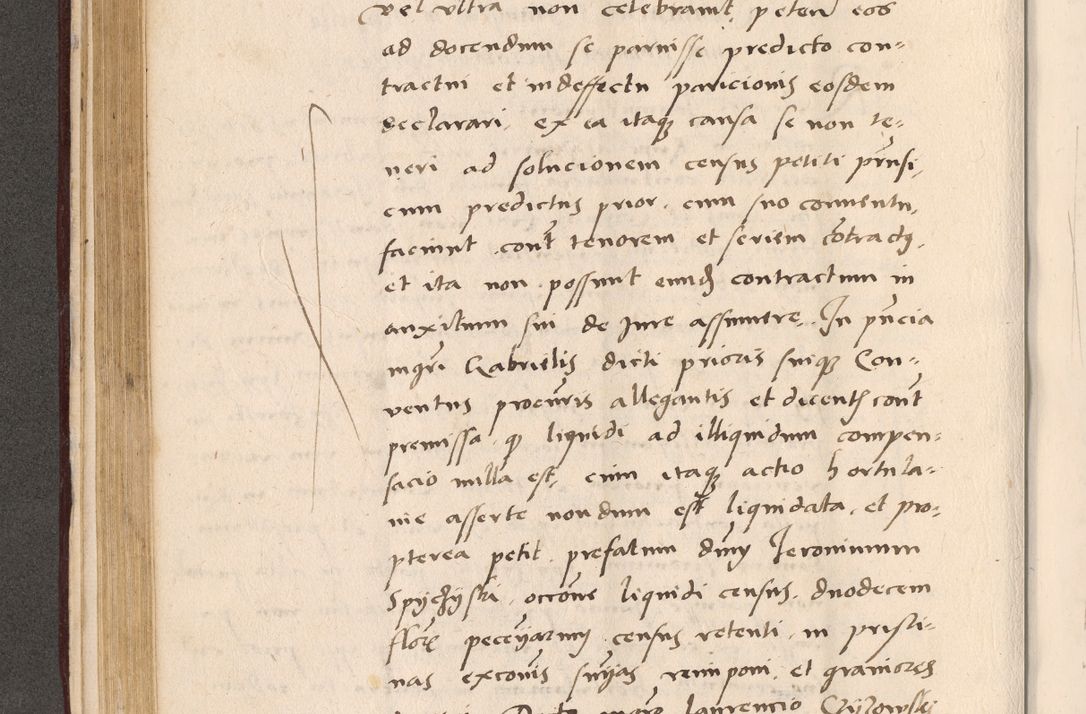 vel ultra non celebrarint, peteret eos
ad docendum se paruisse predicto con-
tractui et in deffectu paricionis eosdem
declarari, ex ea itaq causa se non te-
neri ad solucionem census petiti prusi
cum predictus prior, cum suo conuentu,
faciunt cont tenorem et seriem cotractq,
et ita non possunt eund contractum in
auxilium sui de jure assumere. In pncia
mgri Gabrielis dicti prioris suiq Con-
ventus procuris allegantis et dicent cont
premissa, q liquidi ad illiquidum compen-
sacio nulla est, cum itaq actio hortula-
nie asserte nondum est liquidata, et pro-
pterea petit prefatum dmy Jeronimum
Spyczyski, occone liquidi census, duodecem
flore census retenti, in pristi-
nas exconis snyas reimponi, et graniores
laurencio